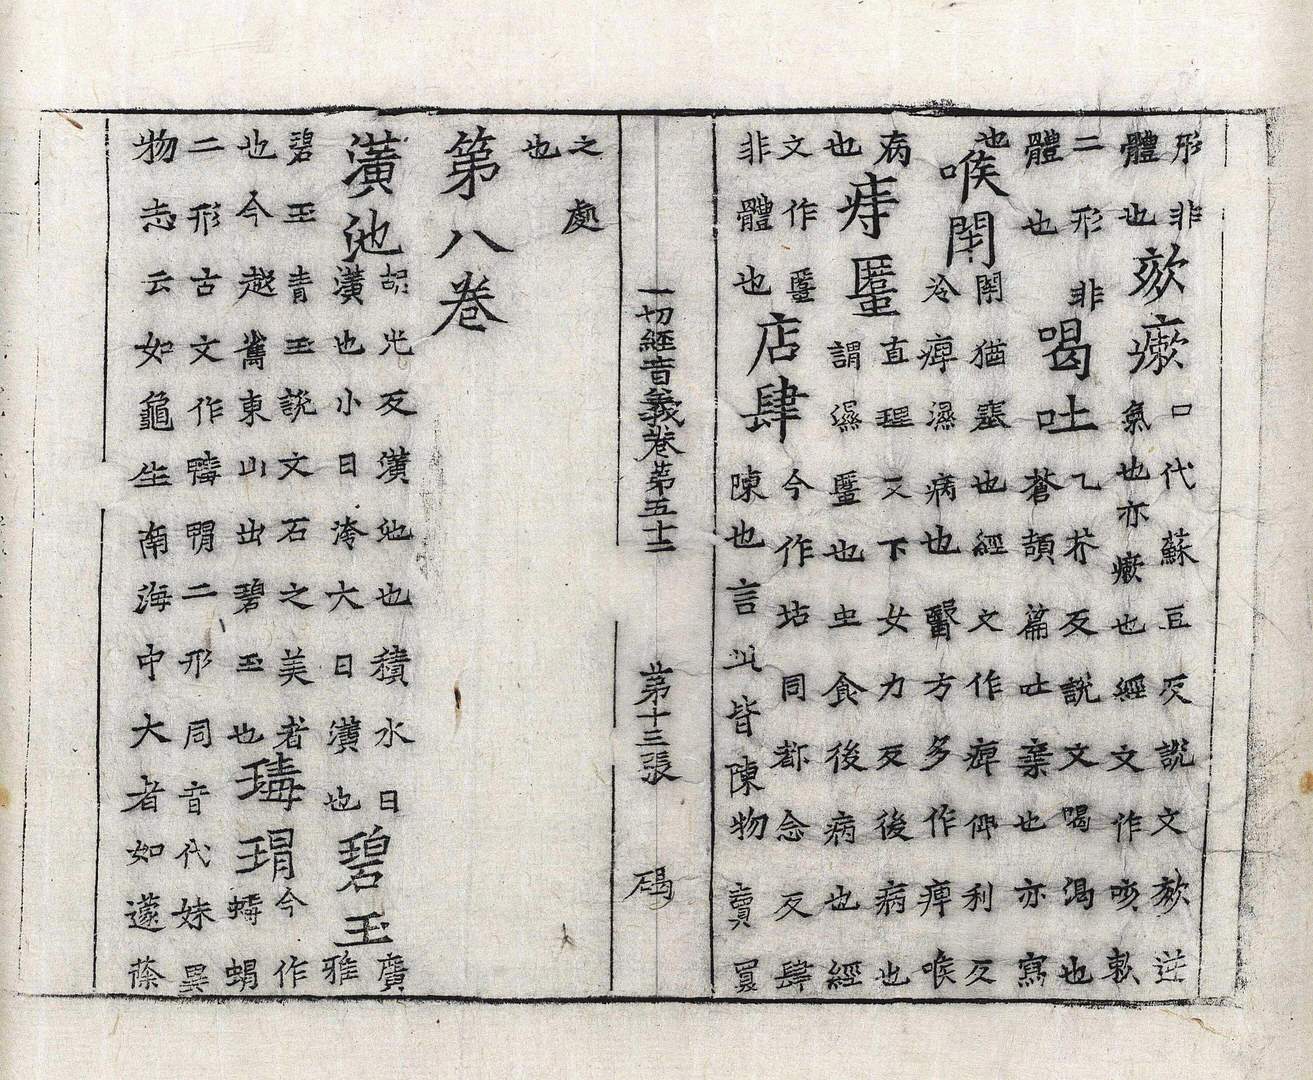 形非體也欬瘶口代蘇豆反說文欬逆氣也亦瘶也經文作咳欶
二形非體也喝吐乙芥反說文喝渴也蒼頡篇吐棄也亦寫
也喉閇閇猶塞也經文作痺仰利反冷痺濕病也醫方多作痺喉
病也痔䘌直理又下女力反後病也謂濕䘌也虫食後病也經
文作䘌非體也店肆今作坫同都念反肆陳也言此皆陳物賣買
一切經音義卷第五十二 第十三張 碣
之處也
第八卷
潢池胡光反潢池也積水曰潢也小曰洿大曰潢也碧玉廣雅
碧玉青玉說文石之美者也今越嶲東山出碧玉也瑇瑁今作蝳蝐
二形古文作二形同音代妹異物志云如龜生南海中大者如蘧蒢